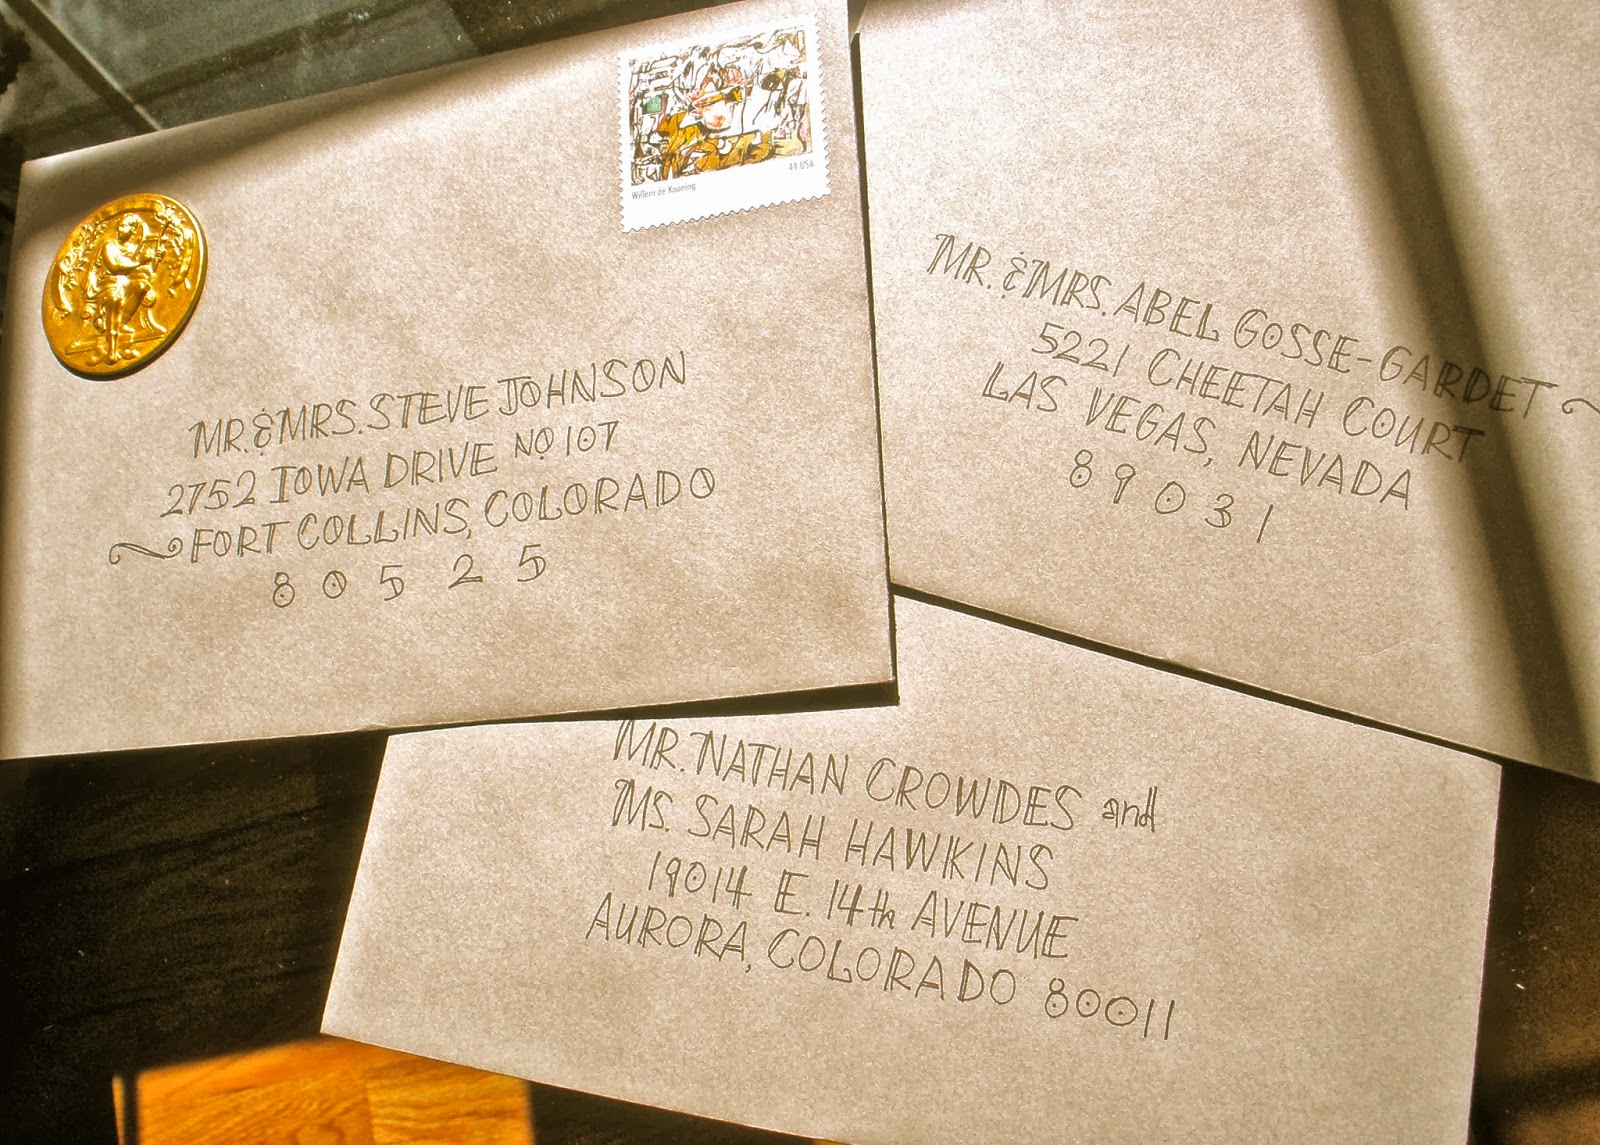 Willem de Kooning
44 USA
MR. & MRS. STEVE JOHNSON
2752 IOWA DRIVE NO 107
FORT COLLINS, COLORADO
80525
MR. & MRS. ABEL GOSSE-GARDET
5221 CHEETAH COURT
LAS VEGAS, NEVADA
89031
MR. NATHAN CROWDES and
MS. SARAH HAWKINS
19014 E. 14th AVENUE
AURORA, COLORADO 80011